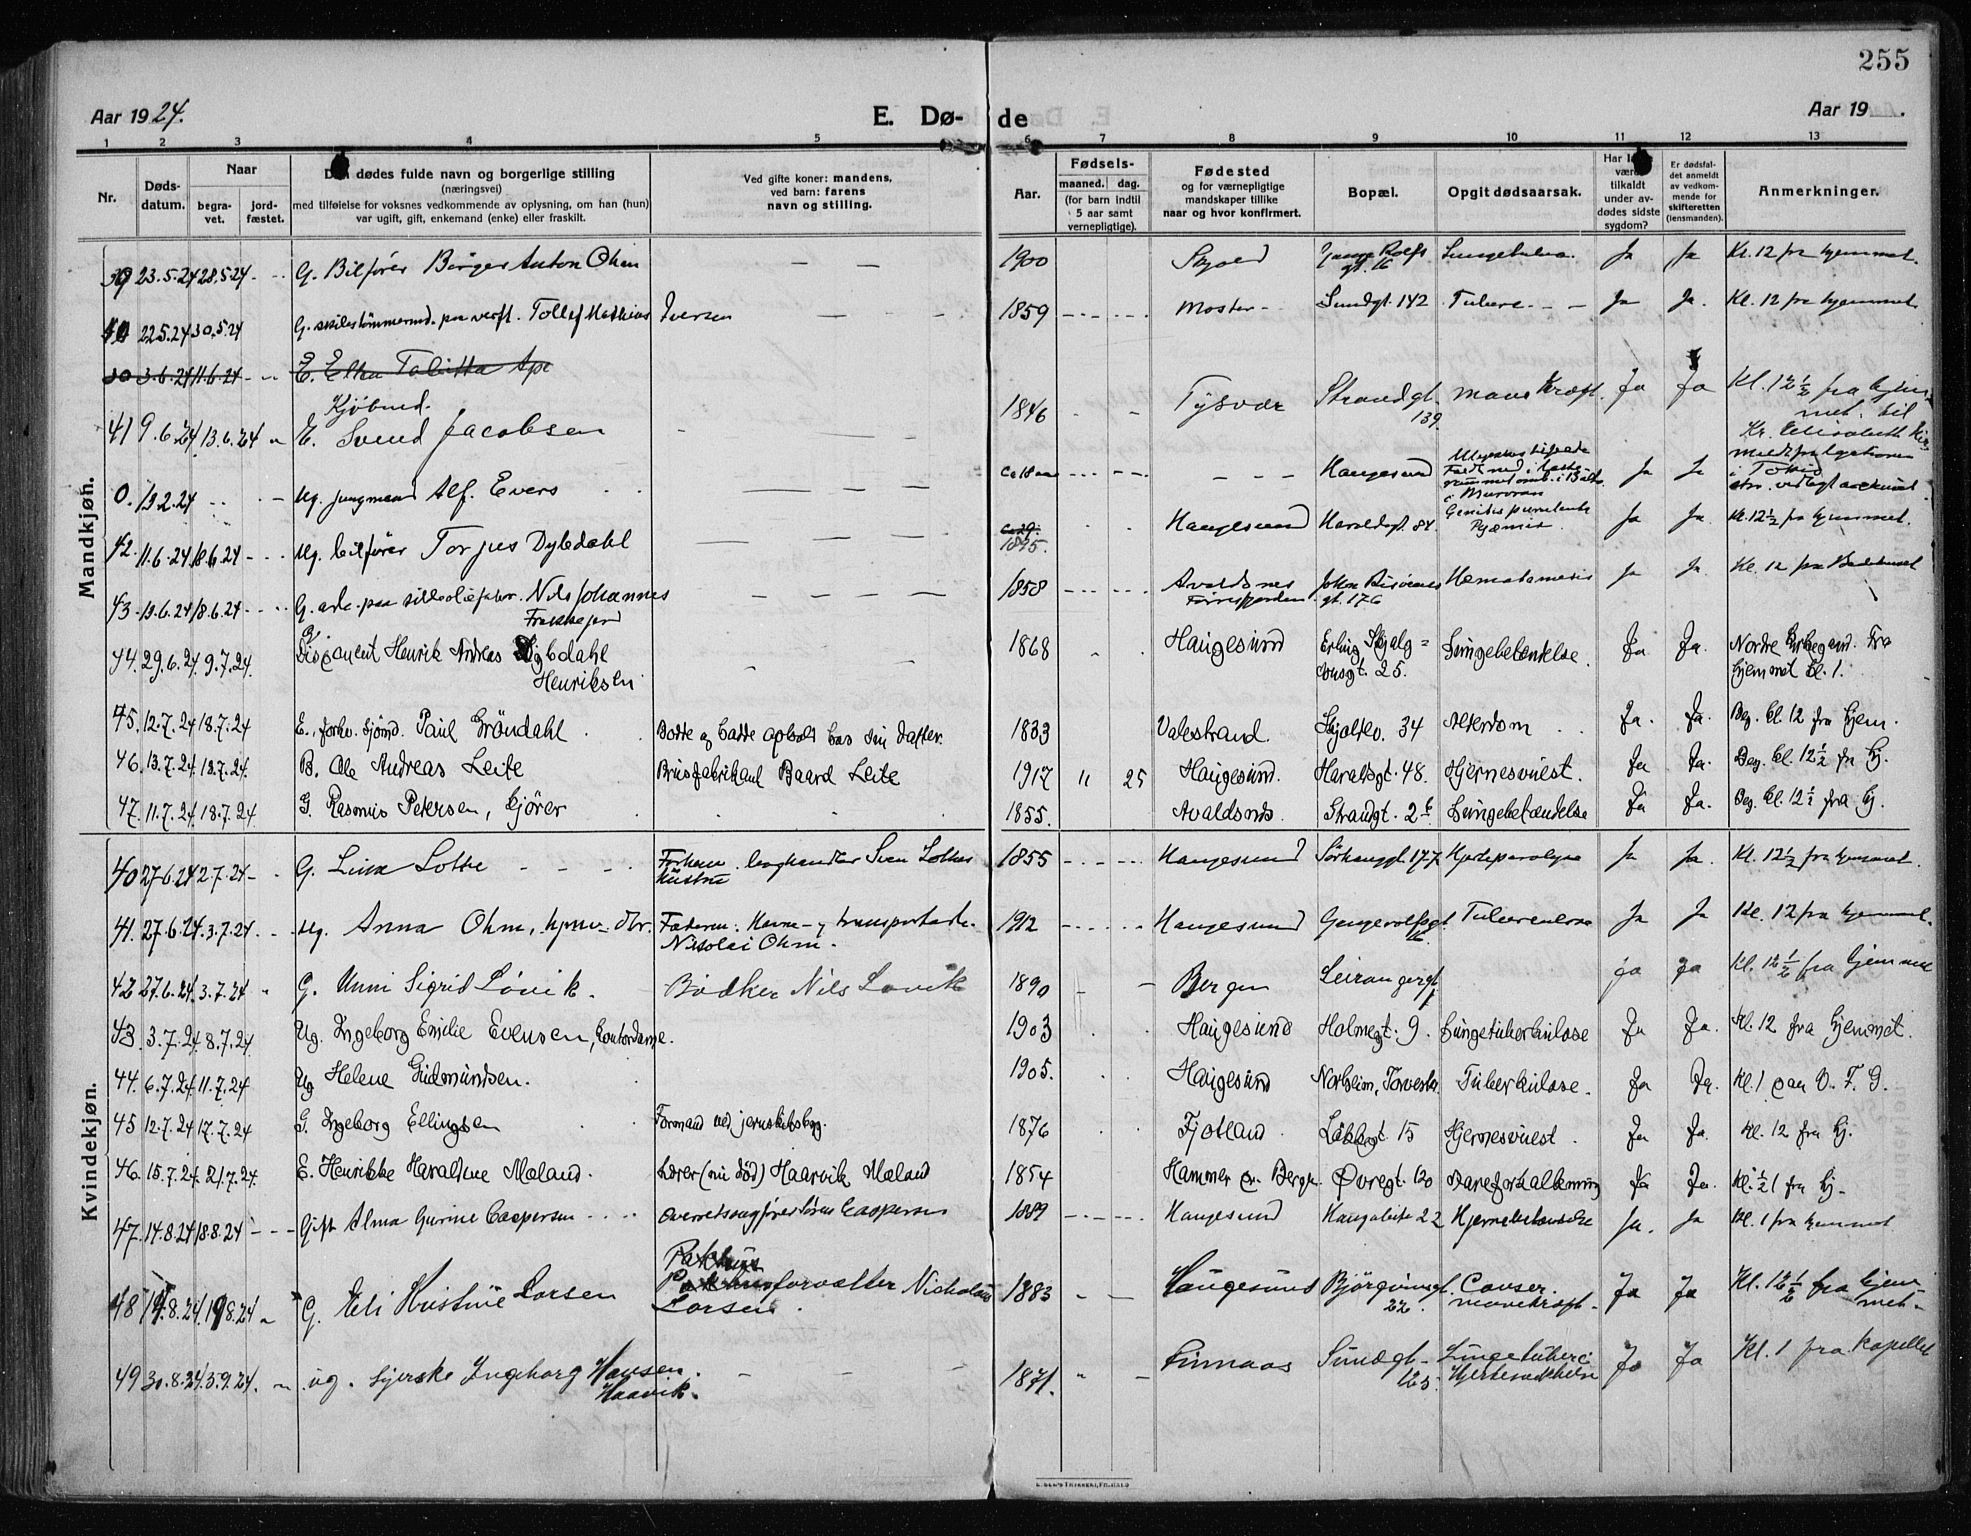 255
Aar 1924.
E. Dø-
de
Aar 19 .
1 2 3 4 5 6 7 8 9 10 11 12 13
Nr.
Døds-
datum.
Naar
begra-
vet.
jord-
fæstet.
dødes fulde navn og borgerlige stilling
(næringsvei)
med tilføielse for voksnes vedkommende av oplysning, om han (hun)
var ugift, gift, enkemand (enke) eller fraskilt.
Ved gifte koner: mandens,
ved barn: farens
navn og stilling.
Aar.
Fødsels-
maaned. dag.
(for barn indtil
5 aar samt
vernepligtige).
Fødested
og for værnepligtige
mandskaper tillike
naar og hvor konfirmert.
Bopæl.
Opgit dødsaarsak.
Har
være
tilkaldt
under av-
dødes sidste
sygdom?
Er dødsfal-
det anmeldt
av vedkom-
mende for
skifteretten
(lensmanden).
Anmerkninger.
Mandkjøn.
39 23.5.24 28.5.24 G. Bilfører Birger Anton Ohm 1900 Skjold Gange Rolfs gt. 16 Ja Ja Kl. 12 fra hjemmet.
40 22.5.24 30.5.24 G. paa verft. Tollef Mathias Iversen 1859 Moster Sundgt. 142 Tuberc. Ja Ja. Kl. 12 fra hjemmet
3.6.24 11.6.24 E. Elen Talitta Ape
41 9.6.24 13.6.24 E. Kjøbmd. Svend Jacobsen 1846 Tysvær Strandgt. 139. Ja Ja Kl. 12½ fra hjem-
met. til
Kr. Elisabeth
0. 13.2.24 Ug. jungmand Alf. Evers ca 18 aar Haugesund Ja Ja
42. 11.6.24 18.6.24 Ug. bilfører Torjus Dybdahl 1895. Haugesund Haraldsgt. 84. Pyæmi Ja Ja Kl. 12½ fra hjemmet.
43. 13.6.24 18.6.24 G. arb. paa sildoljefabr. Nils Johannes 1858 Avaldsnes gt. 176 Hematemesis Ja Ja Kl. 12 fra Bedehuset
44. 29.6.24 9.7.24. G. Disponent Henrik Andreas Dybdahl
Henriksen 1868 Haugesund Erling Skjalg-
sonsgt. 25. Lungebetændelse. Ja Ja. Nordre Fra
hjemmet kl. 1.
45. 12.7.24 18.7.24 E., forhv. sjømd. Paul Gröndahl. 1833 Valestrand. Skjoldev. 34 Alderdom Ja. Ja. Beg. kl. 12 fra hjem.
46. 13.7.24. 18.7.24. B. Ole Andreas Leite Brusfabrikant Baard Leite 1917 11 25 Haugesund. Haraldsgt. 48. Hjernesvulst. Ja Ja. Beg. kl. 12½ fra hj.
47. 11.7.24 18.7.24. G. Rasmus Petersen, kjører 1855. Avaldsnes. Strandgt. 2 Lungebetændelse Ja Ja. Beg. kl. 12½ fra hj.
Kvindekjøn.
40 27.6.24 2.7.24 G. Lina Lothe Sven Lothes
hustru 1855 Haugesund Sørhauggt. 177 Hjerteparalyse Ja Ja. Kl. 12½ fra hjemmet.
41. 27.6.24 3.7.24 Ug. Anna Ohm, hjmv. dtr. Faderen: Havne- og transportarb.
Nicolai Ohm. 1912 Haugesund Gangerolfsgt. 16 Tuberculose Ja Ja Kl. 12 fra hjemmet.
42 27.6.24. 3.7.24 G. Unni Sigrid Lövik. Bödker Nils Lövik 1890 Bergen Leirangergt. ja ja Kl. 12½ fra hjemmet
43. 3.7.24 8.7.24. Ug. Ingeborg Emilie Evensen, kontordame. 1903 Haugesund Holmegt. 9. Lungetuberkulose Ja Ja. Kl. 12 fra hjemmet.
44. 6.7.24 11.7.24 Ug Helene Gudmundsen. 1905. Haugesund Norheim, Torvestad Tuberkulose. Ja Ja. Kl. 1 O. F. G.
45 12.7.24 17.7.24 G. Ingeborg Ellingsen Formand ved 1876 Fjotland. 15 Hjernesvulst. Ja Ja. Kl. 12 fra hj.
46. 15.7.24. 21.7.24. E. Henrikke Haraldine Mæland. Lærer (nu död) Haarvik Mæland 1854 Hammer pr. Bergen. Øvregt. 120 Aareforkalkning Ja Ja. Kl. ½1 fra hj.
47. 14.8.24 18.8.24 Gift Alma Gurine Caspersen Overretssagfører Caspersen 1889 Haugesund 22 Hjernebetændelse Ja. Ja Kl. 1 fra hjemmet
48 14.8.24. 19.8.24 G. Eli Kristine Larsen Pakhus
forvalter Nickolai
Larsen. 1883 Haugesund Björgvinsgt. 22. Cancer. Ja Ja Kl. 12½ fra hjem-
met.
49 30.8.24. 3.9.24. ug. Syerske Ingeborg Hansen
Haavik. 1871. Finnaas Sundgt. 125. Lungetuberc. Ja Ja Kl. 1 fra Kapellet